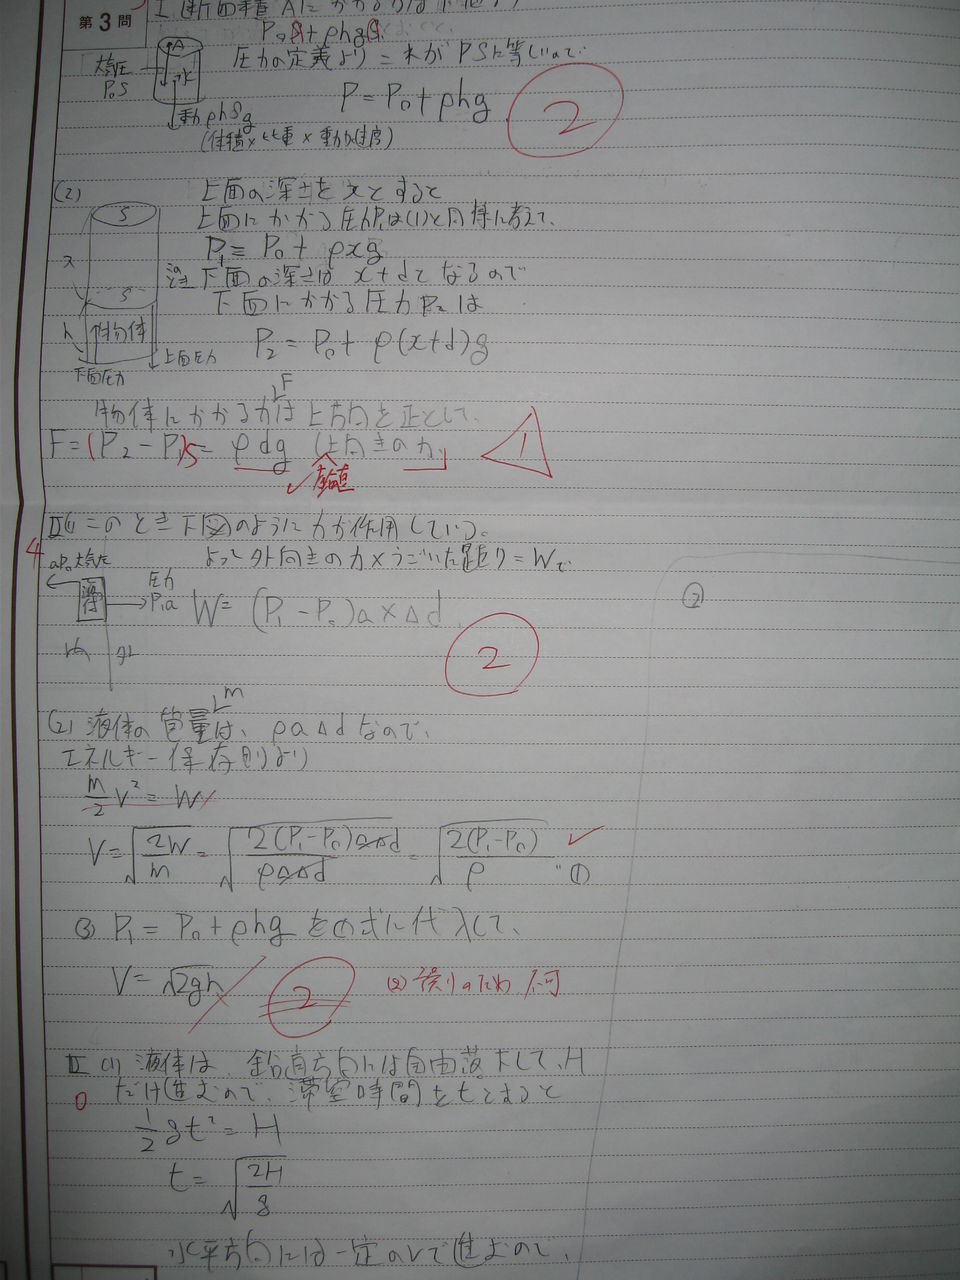 第3問
I 断面積Aにかかる力は
P₀S+ρhgS
圧力の定義よりこれがPSに等しいので
P=P₀+ρhg
2
A
水
大気圧
P₀S
重力ρhSg
(体積×比重×重力加速度)
(2)
上面の深さをxとすると
上面にかかる圧力P₁は(1)と同様に考えて、
P₁=P₀+ρxg
下面の深さはx+dとなるので
下面にかかる圧力P₂は
P₂=P₀+ρ(x+d)g
S
x
S
h
物体
上面圧力
下面圧力
F
物体にかかる力は上方向を正として、
F=(P₂-P₁)S=ρdg (上向きの力
1
II(1)このとき下図のように力が作用している。
4
よって外向きの力×うごいた距離=Wで
aP₀大気圧
液体
圧力
P₁a
W=(P₁-P₀)a×Δd
2
2
m
(2)液体の質量は、ρaΔdなので、
エネルギー保存則より
m/2 v²=W
V=√(2W/m)=√(2(P₁-P₀)aΔd/ρaΔd)=√(2(P₁-P₀)/ρ) …①
(3) P₁=P₀+ρhgを①式に代入して、
V=√2gh
2
(2)誤りのため不可
III (1) 液体は、鉛直方向には自由落下して、H
0
だけ進むので、滞空時間をtとすると
1/2 gt²=H
t=√(2H/g)
水平方向には一定のVで進むので、